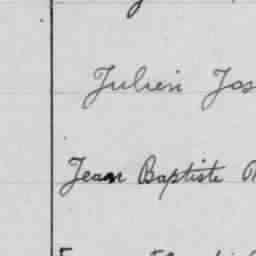 Julien Jos
Jean Baptiste